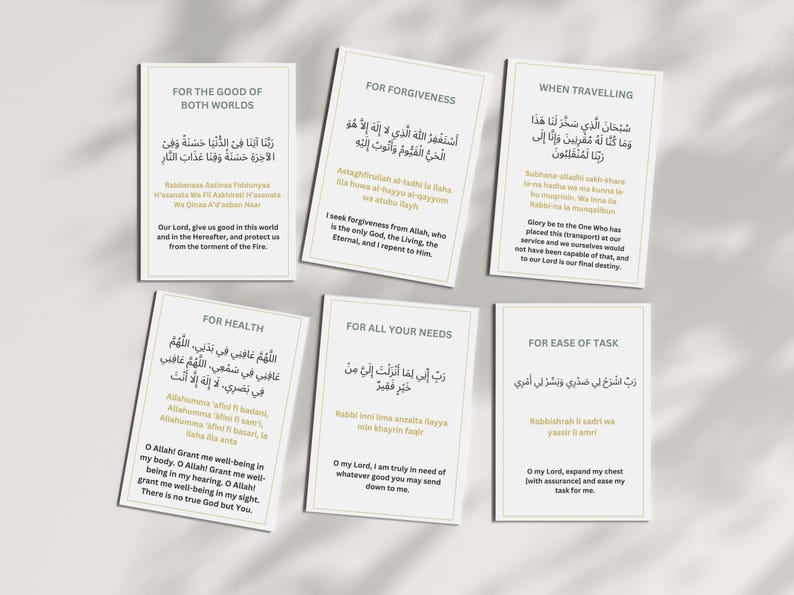 FOR THE GOOD OF
BOTH WORLDS
رَبَّنَا آتِنَا فِيْ الدُّنْيَا حَسَنَةً وَفِيْ
الآخِرَةِ حَسَنَةً وَقِنَا عَذَابَ النَّارِ
Rabbanaaa Aatinaa Fiddunyaa
H'asanata Wa Fil Aakhirati H'asanata
Wa Qinaa A'd'aaban Naar
Our Lord, give us good in this world
and in the Hereafter, and protect us
from the torment of the Fire.
FOR FORGIVENESS
أَسْتَغْفِرُ اللهَ الَّذِي لا إِلَهَ إِلاَّ هُوَ
الْحَيُّ الْقَيُّومُ وَأَتُوبُ إِلَيْهِ
Astaghfirullah al-ladhi la ilaha
illa huwa al-hayyu al-qayyum
wa atubu ilayh
I seek forgiveness from Allah, who
is the only God, the Living, the
Eternal, and I repent to Him.
WHEN TRAVELLING
سُبْحَانَ الَّذِي سَخَّرَ لَنَا هَذَا
وَمَا كُنَّا لَهُ مُقْرِنِينَ وَإِنَّا إِلَى
رَبِّنَا لَمُنْقَلِبُونَ
Subhana-alladhi sakh-khara
la-na hadha wa ma kunna la-
hu muqrinin. Wa inna ila
Rabbi-na la munqalibun
Glory be to the One Who has
placed this (transport) at our
service and we ourselves would
not have been capable of that, and
to our Lord is our final destiny.
FOR HEALTH
اللَّهُمَّ عَافِنِي فِي بَدَنِي، اللَّهُمَّ
عَافِنِي فِي سَمْعِي، اللَّهُمَّ عَافِنِي
فِي بَصَرِي، لَا إِلَهَ إِلَّا أَنْتَ
Allahumma 'afini fi badani,
Allahumma 'âfini fi sam'i,
Allahumma 'âfini fi basari, la
ilaha illa anta
O Allah! Grant me well-being in
my body. O Allah! Grant me well-
being in my hearing. O Allah!
grant me well-being in my sight.
There is no true God but You.
FOR ALL YOUR NEEDS
رَبِّ إِنِّي لِمَا أَنْزَلْتَ إِلَيَّ مِنْ
خَيْرٍ فَقِيرٌ
Rabbi inni lima anzalta ilayya
min khayrin faqir
O my Lord, I am truly in need of
whatever good you may send
down to me.
FOR EASE OF TASK
رَبِّ اشْرَحْ لِي صَدْرِي وَيَسِّرْ لِي أَمْرِي
Rabbishrah li sadri wa
yassir li amri
O my Lord, expand my chest
[with assurance] and ease my
task for me.